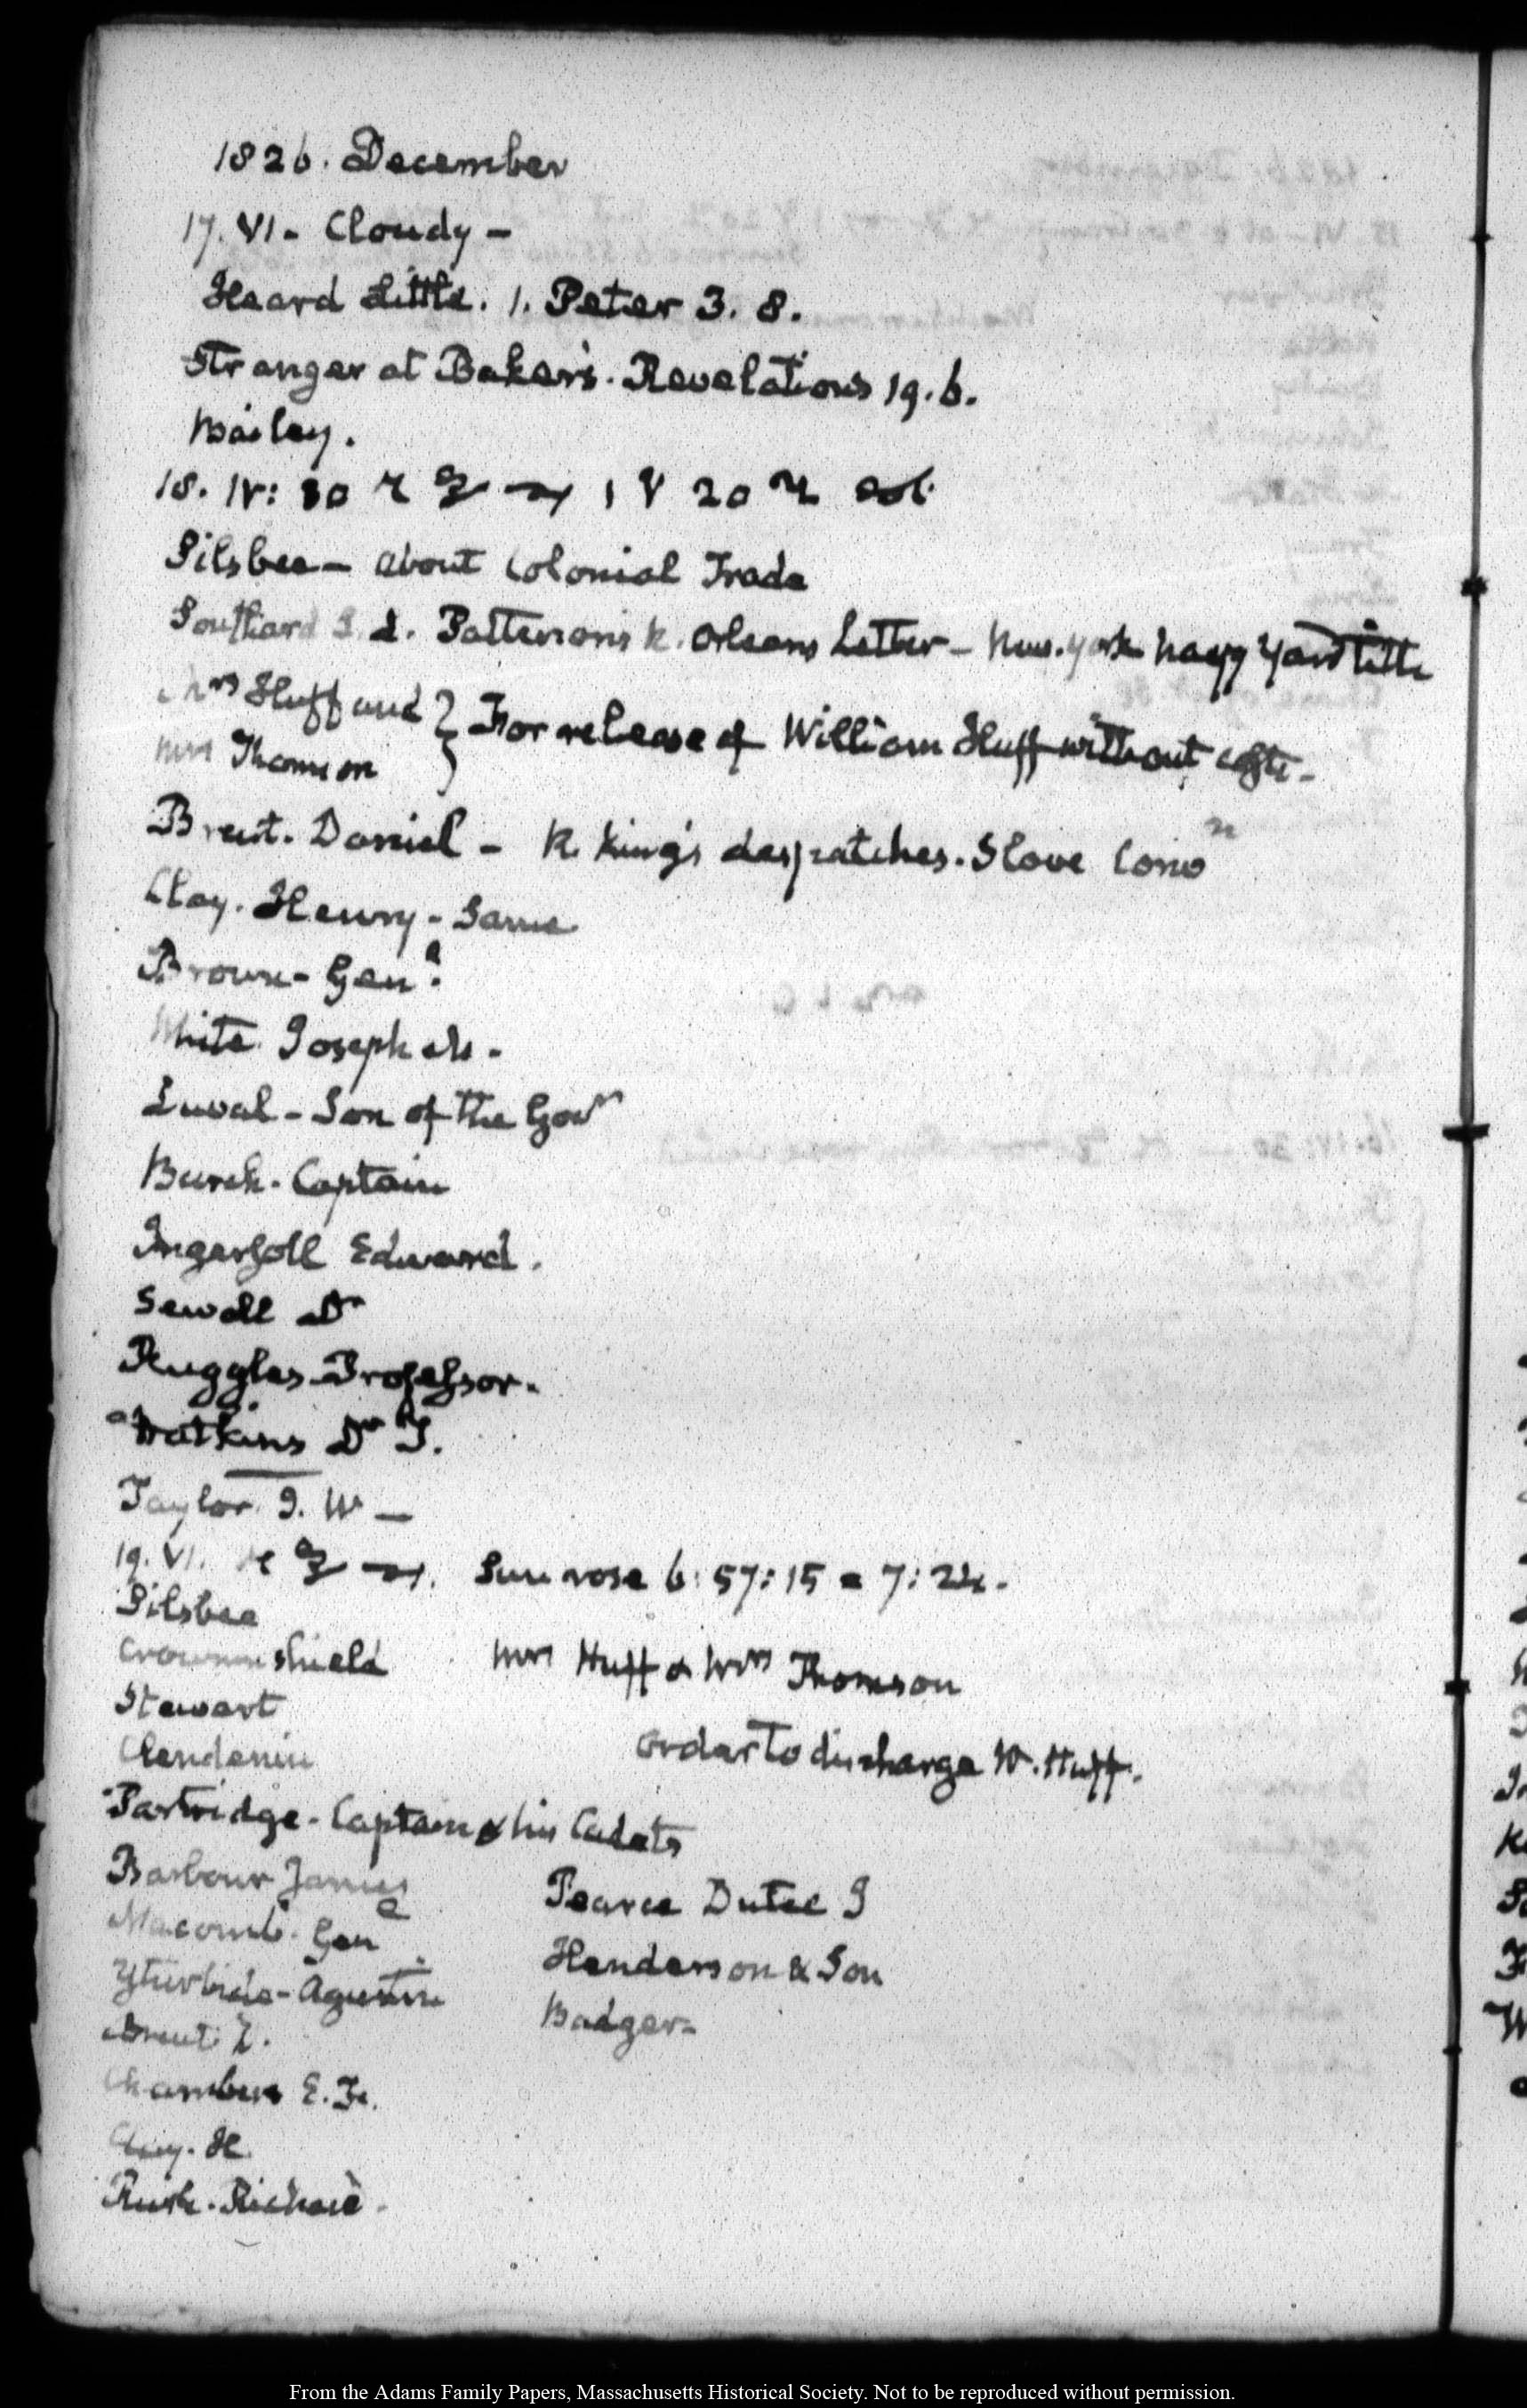 1826. December
17. VI. Cloudy –
Heard Little. 1. Peter 3. 8.
Stranger at Baker's. Revelations 19. 6.
Bailey.
18. IV: 30
Silsbee – about Colonial Trade
Southard S. L. Patterson's N. Orleans Letter – New-York Navy Yard title
Mrs Huff and } For release of William Huff without costs.
Mrs Thomson
Brent. Daniel – R. King's despatches. Slave Convn
Clay. Henry – Same
Brown – Genl.
White Joseph M.
Duval – Son of the Govr
Burch. Captain
Ingersoll Edward.
Sewall Dr
Ruggles Professor.
Watkins Dr T.
Taylor. J. W –
19. VI. Sun rose 6: 57: 15 = 7: 24.
Silsbee
Crowninshield Mrs Huff & Mrs Thomson
Stewart
Clendenin Order to discharge W. Huff.
Partridge. Captain & his Cadets
Barbour James Pearce Dutee J
Macomb. Genl Henderson & Son
Yturbide – Agustin Badger
Brent
Chambers E. F.
Clay. H.
Rush. Richard.
From the Adams Family Papers, Massachusetts Historical Society. Not to be reproduced without permission.